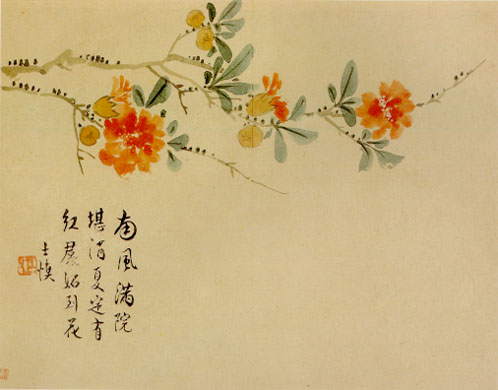 南風滿院
堪消夏定有
紅裠妬此花
士慎